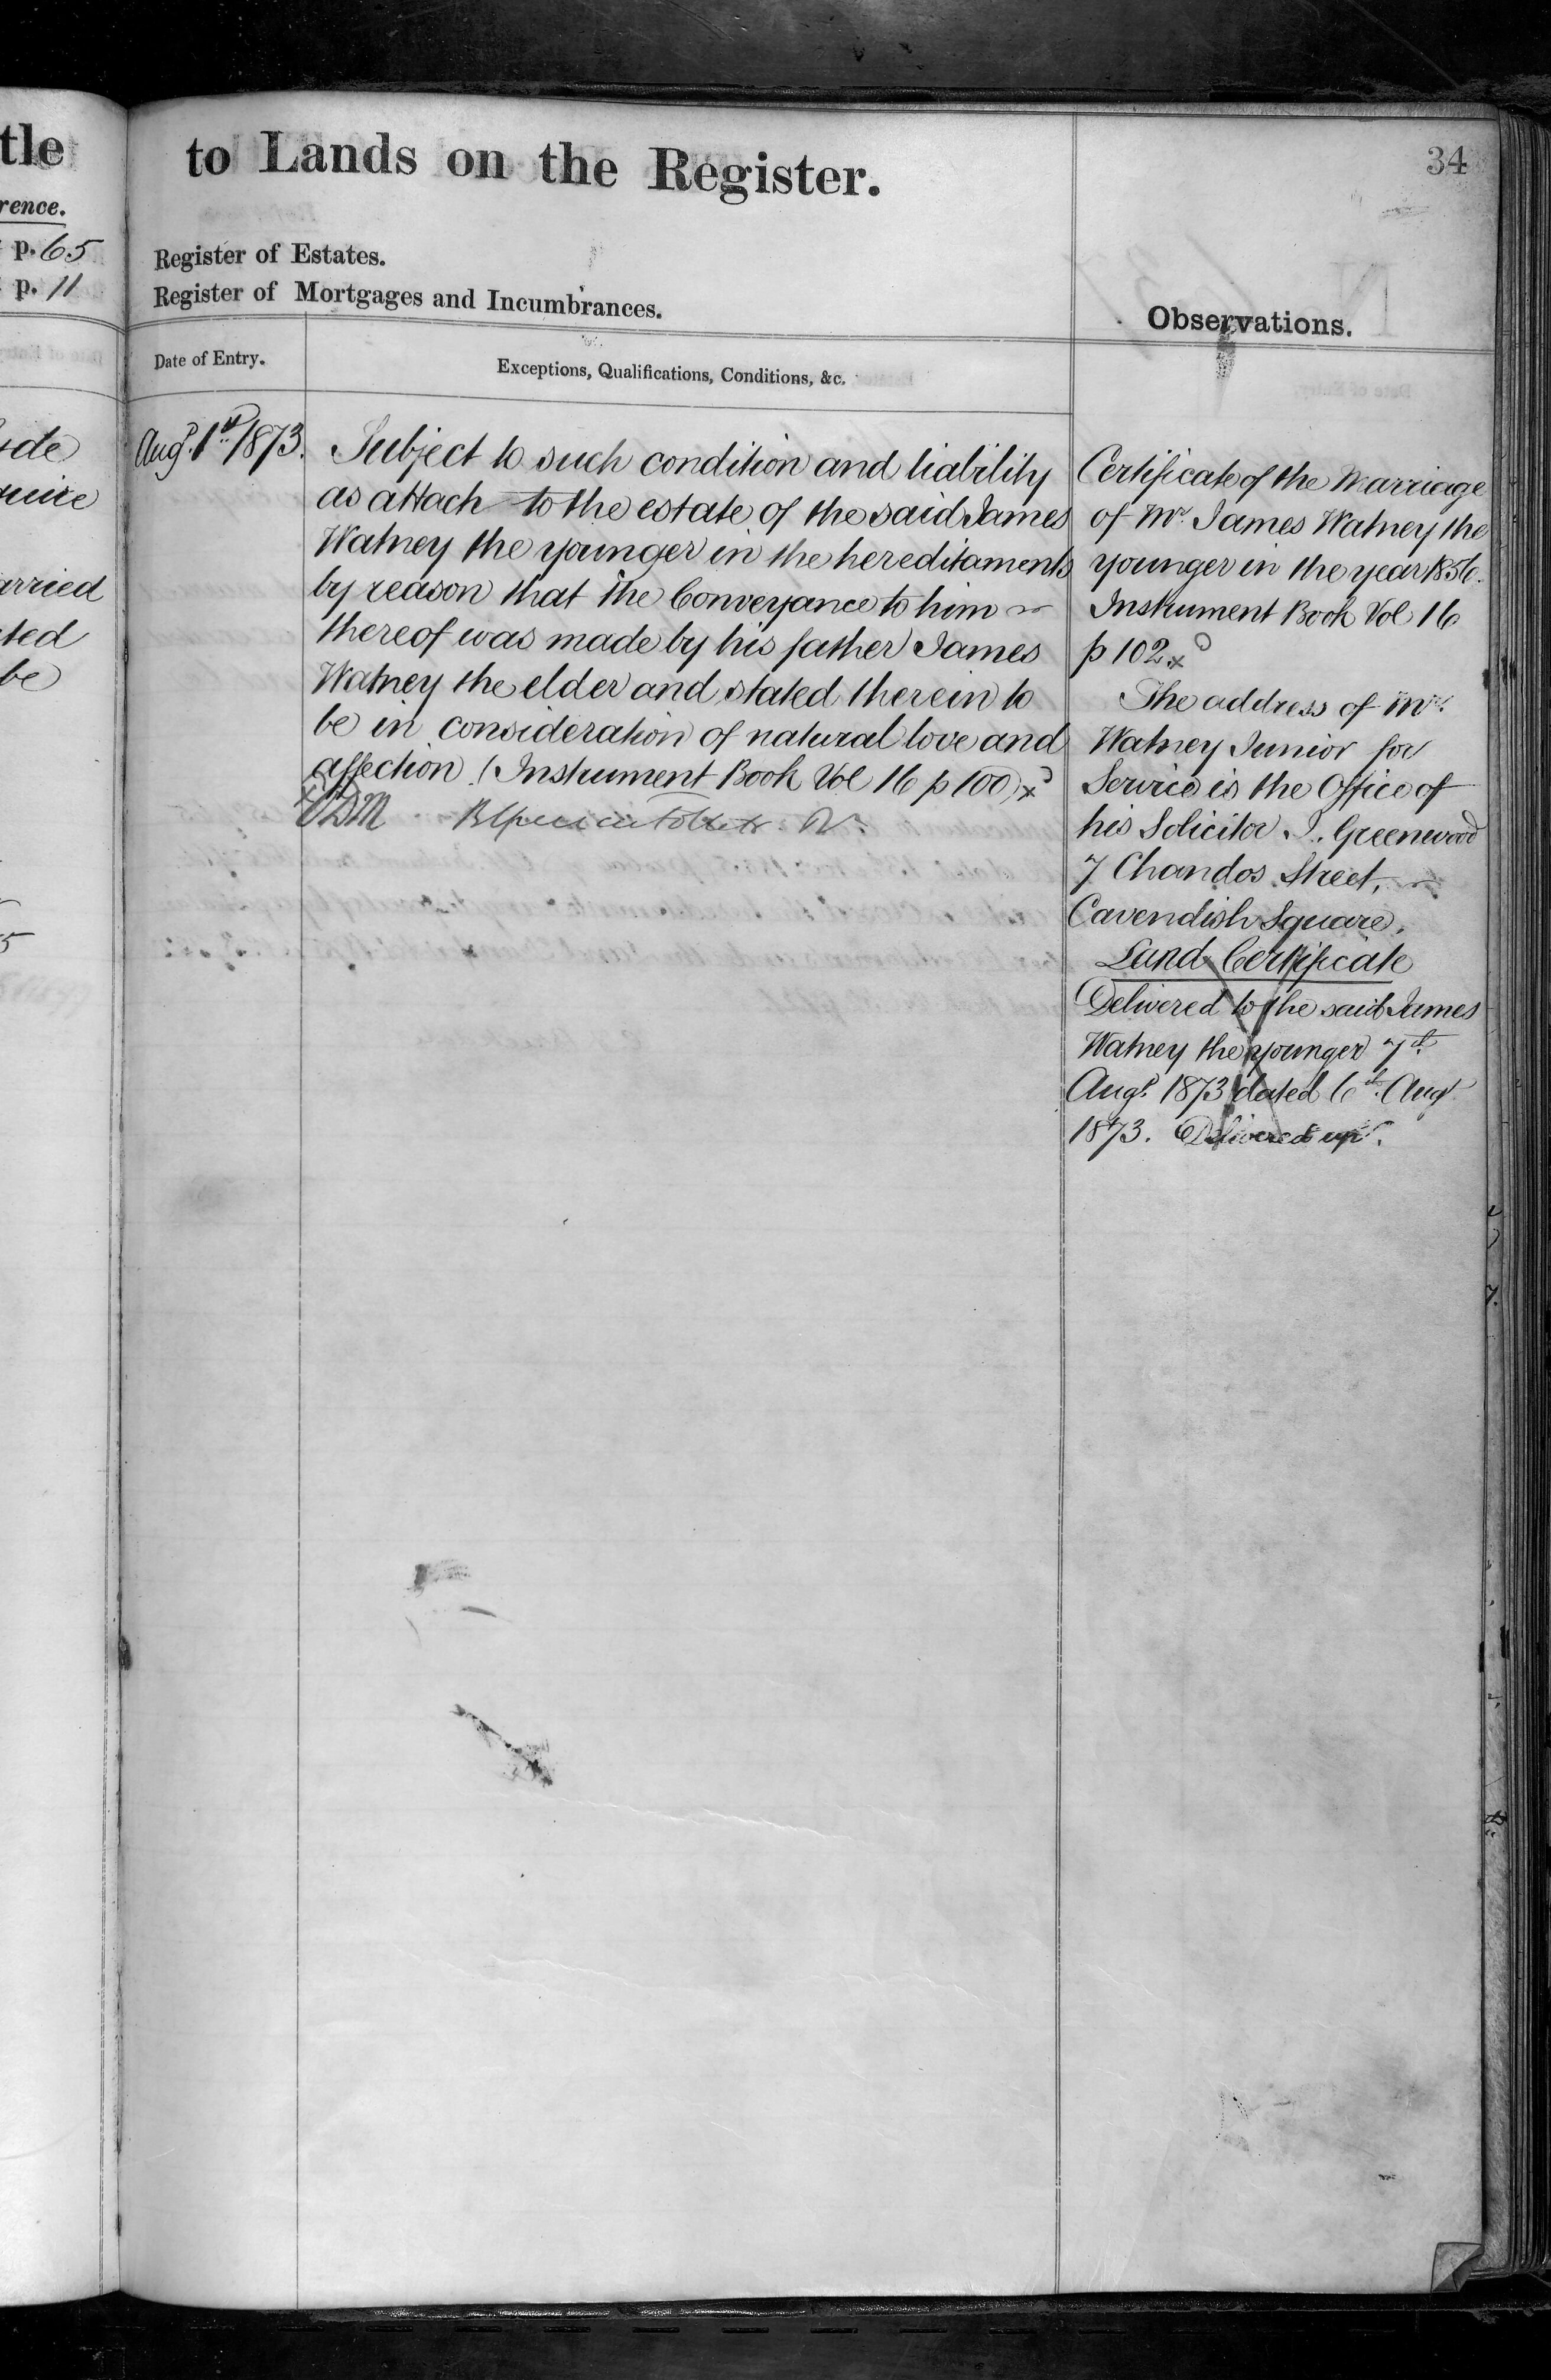 tle
rence.
p. 65
p. 11
arried
ted
be
to Lands on the Register.
34
Register of Estates.
Register of Mortgages and Incumbrances.
Observations.
Date of Entry.
Exceptions, Qualifications, Conditions, &c.
Augt. 1st 1873.
Subject to such condition and liability
as attach to the estate of the said James
Watney the younger in the hereditaments
by reason that the Conveyance to him
thereof was made by his father James
Watney the elder and stated therein to
be in consideration of natural love and
affection (Instrument Book Vol 16 p 100) x
Certificate of the Marriage
of Mr. James Watney the
younger in the year 1856.
Instrument Book Vol 16
p 102 x
The address of Mr.
Watney Junior for
Service is the Office of
his Solicitor J. Greenwood
7 Chandos Street,
Cavendish Square.
Land Certificate
Delivered to the said James
Watney the younger 7th
Augt. 1873 dated 6th Augt
1873. Delivered up.